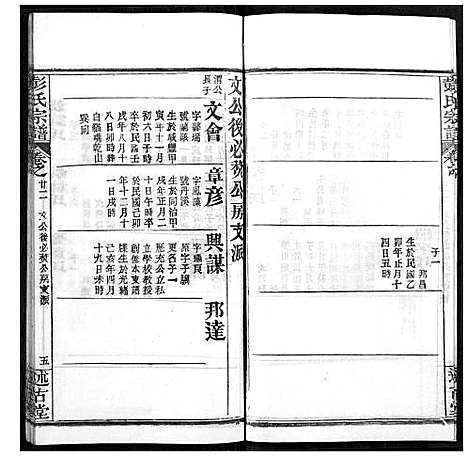 彭氏宗譜
卷之
子一
邦昌
生於民國乙
卯年正月十
四日丑時
文公後必發公房支派
渭公
長子
文會
字
號蘭
生於咸豐甲
寅年十一月
初六日子時
卒於民國壬
戌年八月十
八日卯時
白貓嘴乾山
巽向
章彥
字
號丹溪
生於同治甲
戌年正月二
於民國己卯
年十二月十
一日戌時
興謀
字
原字子
更名子一
歷充公立私
立學校教授
創修本支譜
牒生於光緒
己亥年四月
十九日未時
邦達
彭氏宗譜
卷之
廿二
文公後必發公房支派
五
述古堂
述古堂